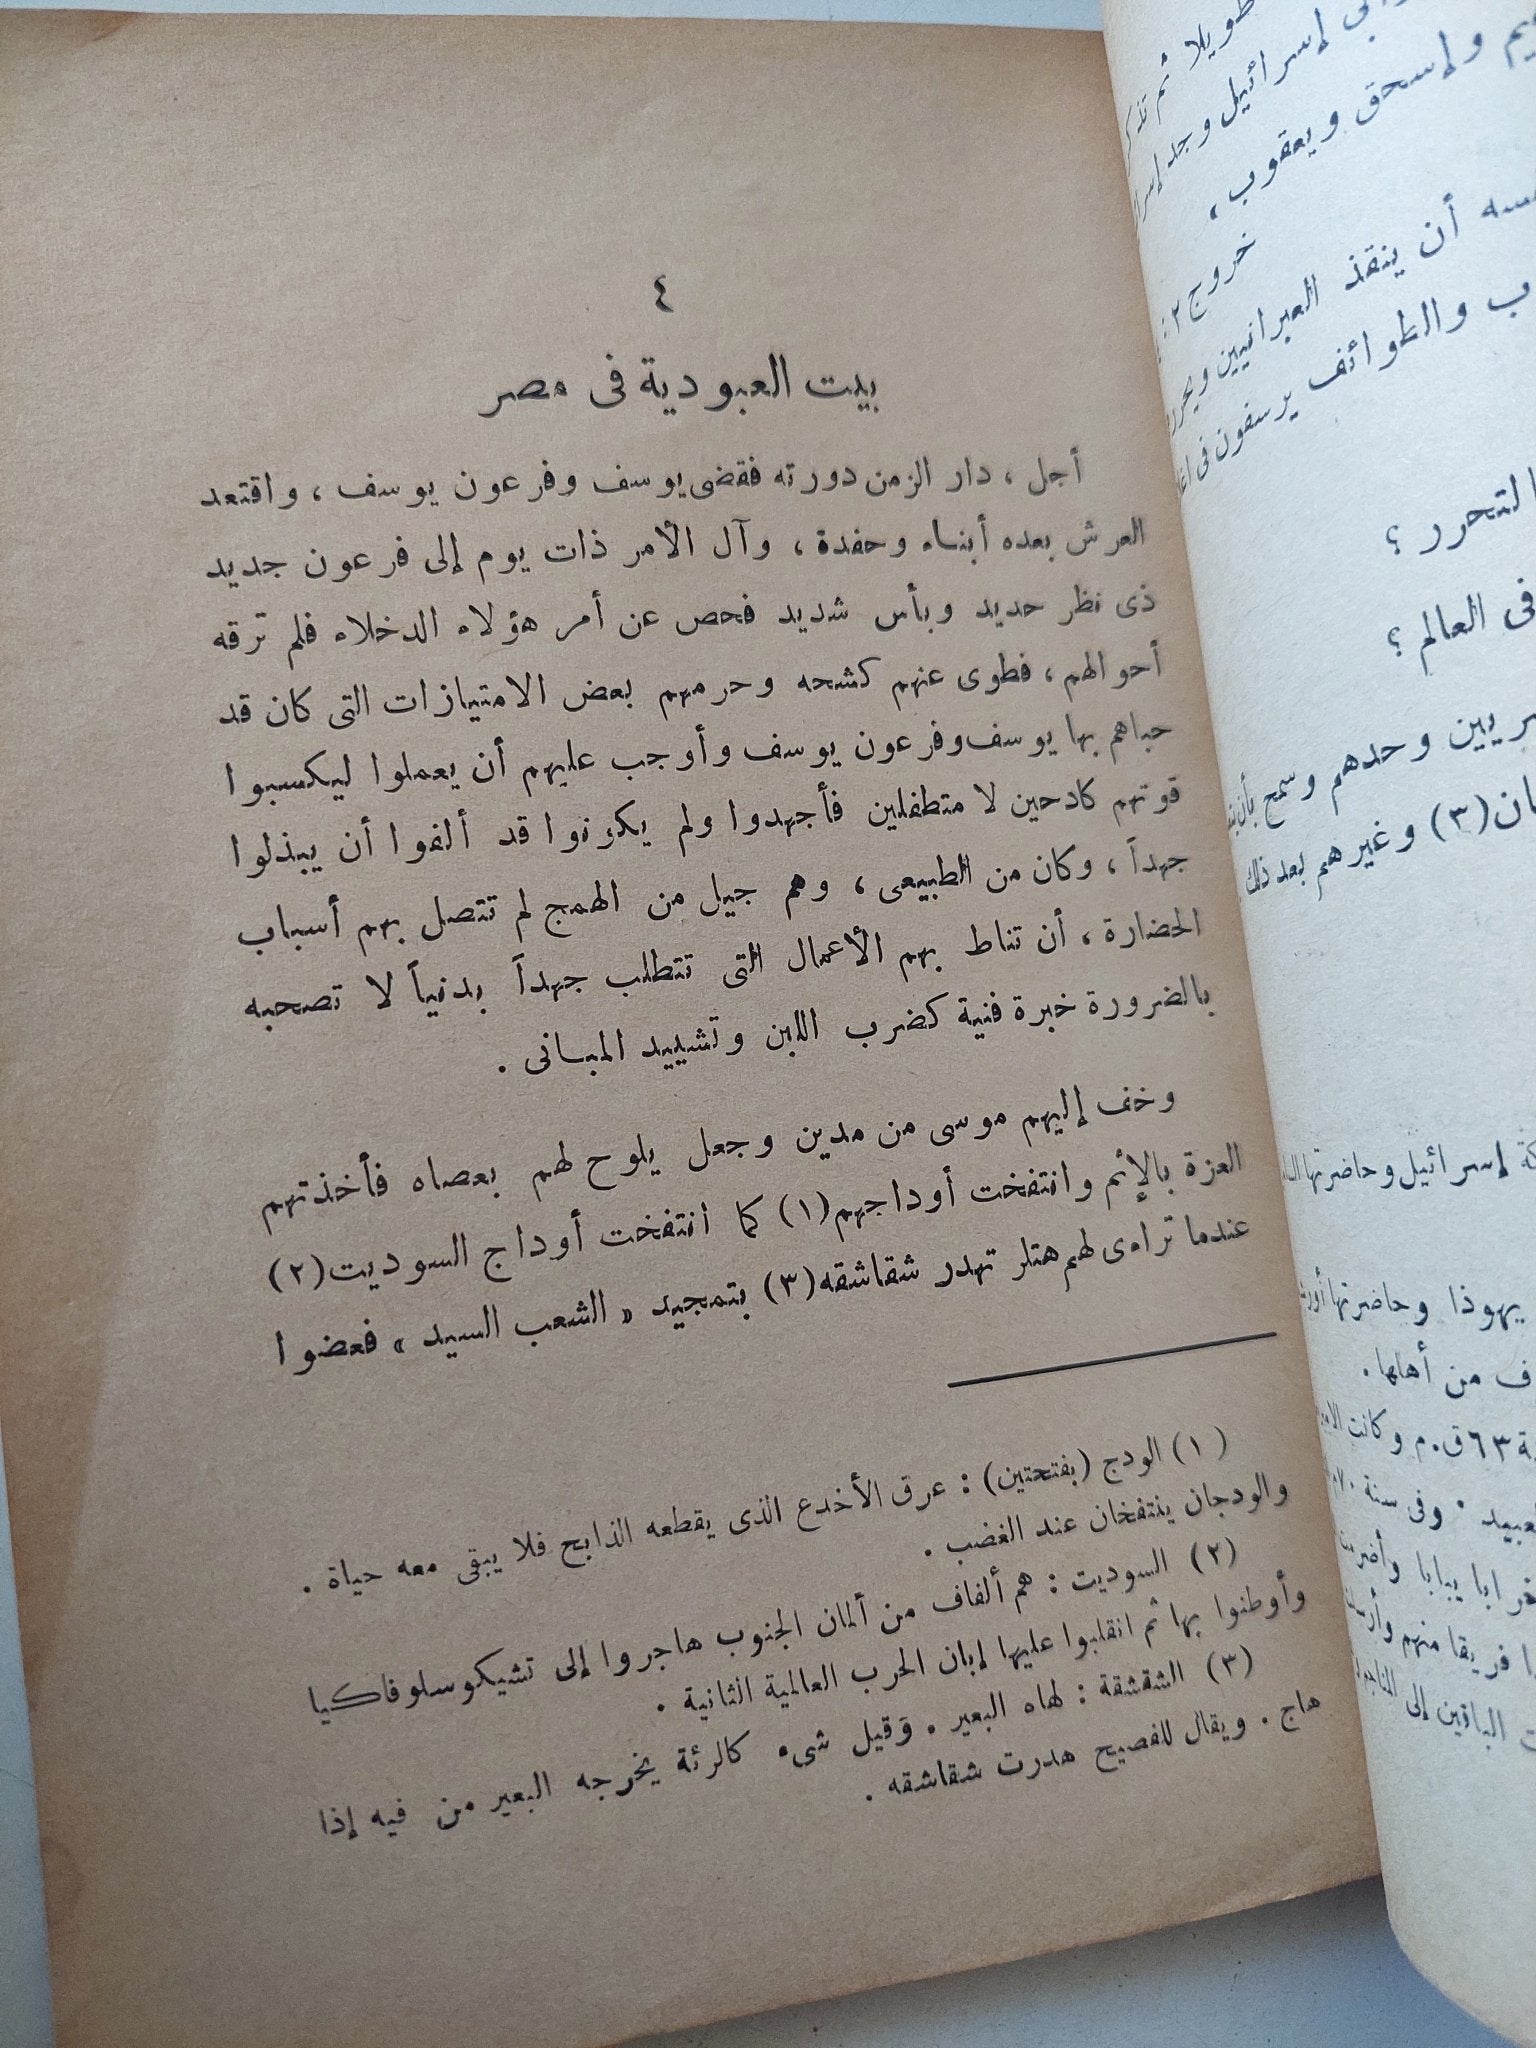 ٤
بيت العبودية فى مصر
أجل ، دار الزمن دورته فقضى يوسف وفرعون يوسف ، واقتعد
العرش بعده أبناء وحفدة ، وآل الأمر ذات يوم إلى فرعون جديد
ذى نظر حديد وبأس شديد فحص عن أمر هؤلاء الدخلاء فلم ترقه
أحوالهم ، فطوى عنهم كشحه وحرمهم بعض الامتيازات التى كان قد
حباهم بها يوسف وفرعون يوسف وأوجب عليهم أن يعملوا ليكسبوا
قوتهم كادحين لا متطفلين فأجهدوا ولم يكونوا قد ألفوا أن يبذلوا
جهداً ، وكان من الطبيعى ، وهم جيل من الهمج لم تتصل بهم أسباب
الحضارة ، أن تناط بهم الأعمال التى تتطلب جهداً بدنياً لا تصحبه
بالضرورة خبرة فنية كضرب اللبن وتشييد المبانى .
وخف إليهم موسى من مدين وجعل يلوح لهم بعصاه فأخذتهم
العزة بالإثم وانتفخت أوداجهم (١) كما انتفخت أوداج السوديت (٢)
عندما تراءى لهم هتلر تهدر شقاشقه (٣) بتمجيد « الشعب السيد » فعضوا
(١) الودج (بفتحتين) : عرق الأخدع الذى يقطعه الذابح فلا يبقى معه حياة .
والودجان ينتفخان عند الغضب .
(٢) السوديت : هم ألفاف من ألمان الجنوب هاجروا إلى تشيكوسلوفاكيا
وأوطنوا بها ثم انقلبوا عليها إبان الحرب العالمية الثانية .
(٣) الشقشقة : لهاه البعير . وقيل شىء كالرئة يخرجه البعير من فيه إذا
هاج . ويقال للفصيح هدرت شقاشقه .
طويلا ثم تذكر
إسرائيل وجد
وإسحق ويعقوب ،
خروج ٢ :
أن ينقذ العبرانيين ويحرر
والطوائف يرسفون فى
التحرر ؟
فى العالم ؟
وحدهم وسمح
(٣) وغيرهم بعد ذلك
إسرائيل وحاضرتها
يهوذا وحاضرتها
من أهلها .
٦٣ ق . م وكانت
وفى سنة ٧٠
فريقا منهم
الباقين إلى